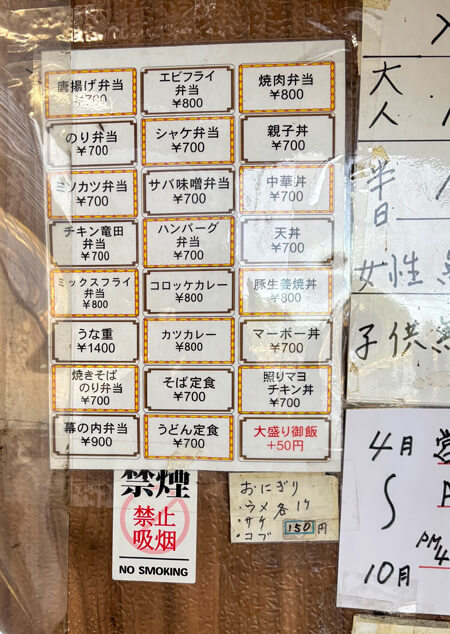 唐揚げ弁当
¥700
エビフライ
弁当
¥800
焼肉弁当
¥800
のり弁当
¥700
シャケ弁当
¥700
親子丼
¥700
ミソカツ弁当
¥700
サバ味噌弁当
¥700
中華丼
¥700
チキン竜田
弁当
¥700
ハンバーグ
弁当
¥700
天丼
¥700
ミックスフライ
弁当
¥800
コロッケカレー
¥800
豚生姜焼丼
¥800
うな重
¥1400
カツカレー
¥800
マーボー丼
¥700
焼きそば
のり弁当
¥700
そば定食
¥700
照りマヨ
チキン丼
¥700
幕の内弁当
¥900
うどん定食
¥700
大盛り御飯
+50円
禁煙
禁止
吸烟
NO SMOKING
おにぎり
・ウメ 各1ケ
・サケ
・コブ 150円
大
人
半
日
女性
子供
4月
10月
PM4